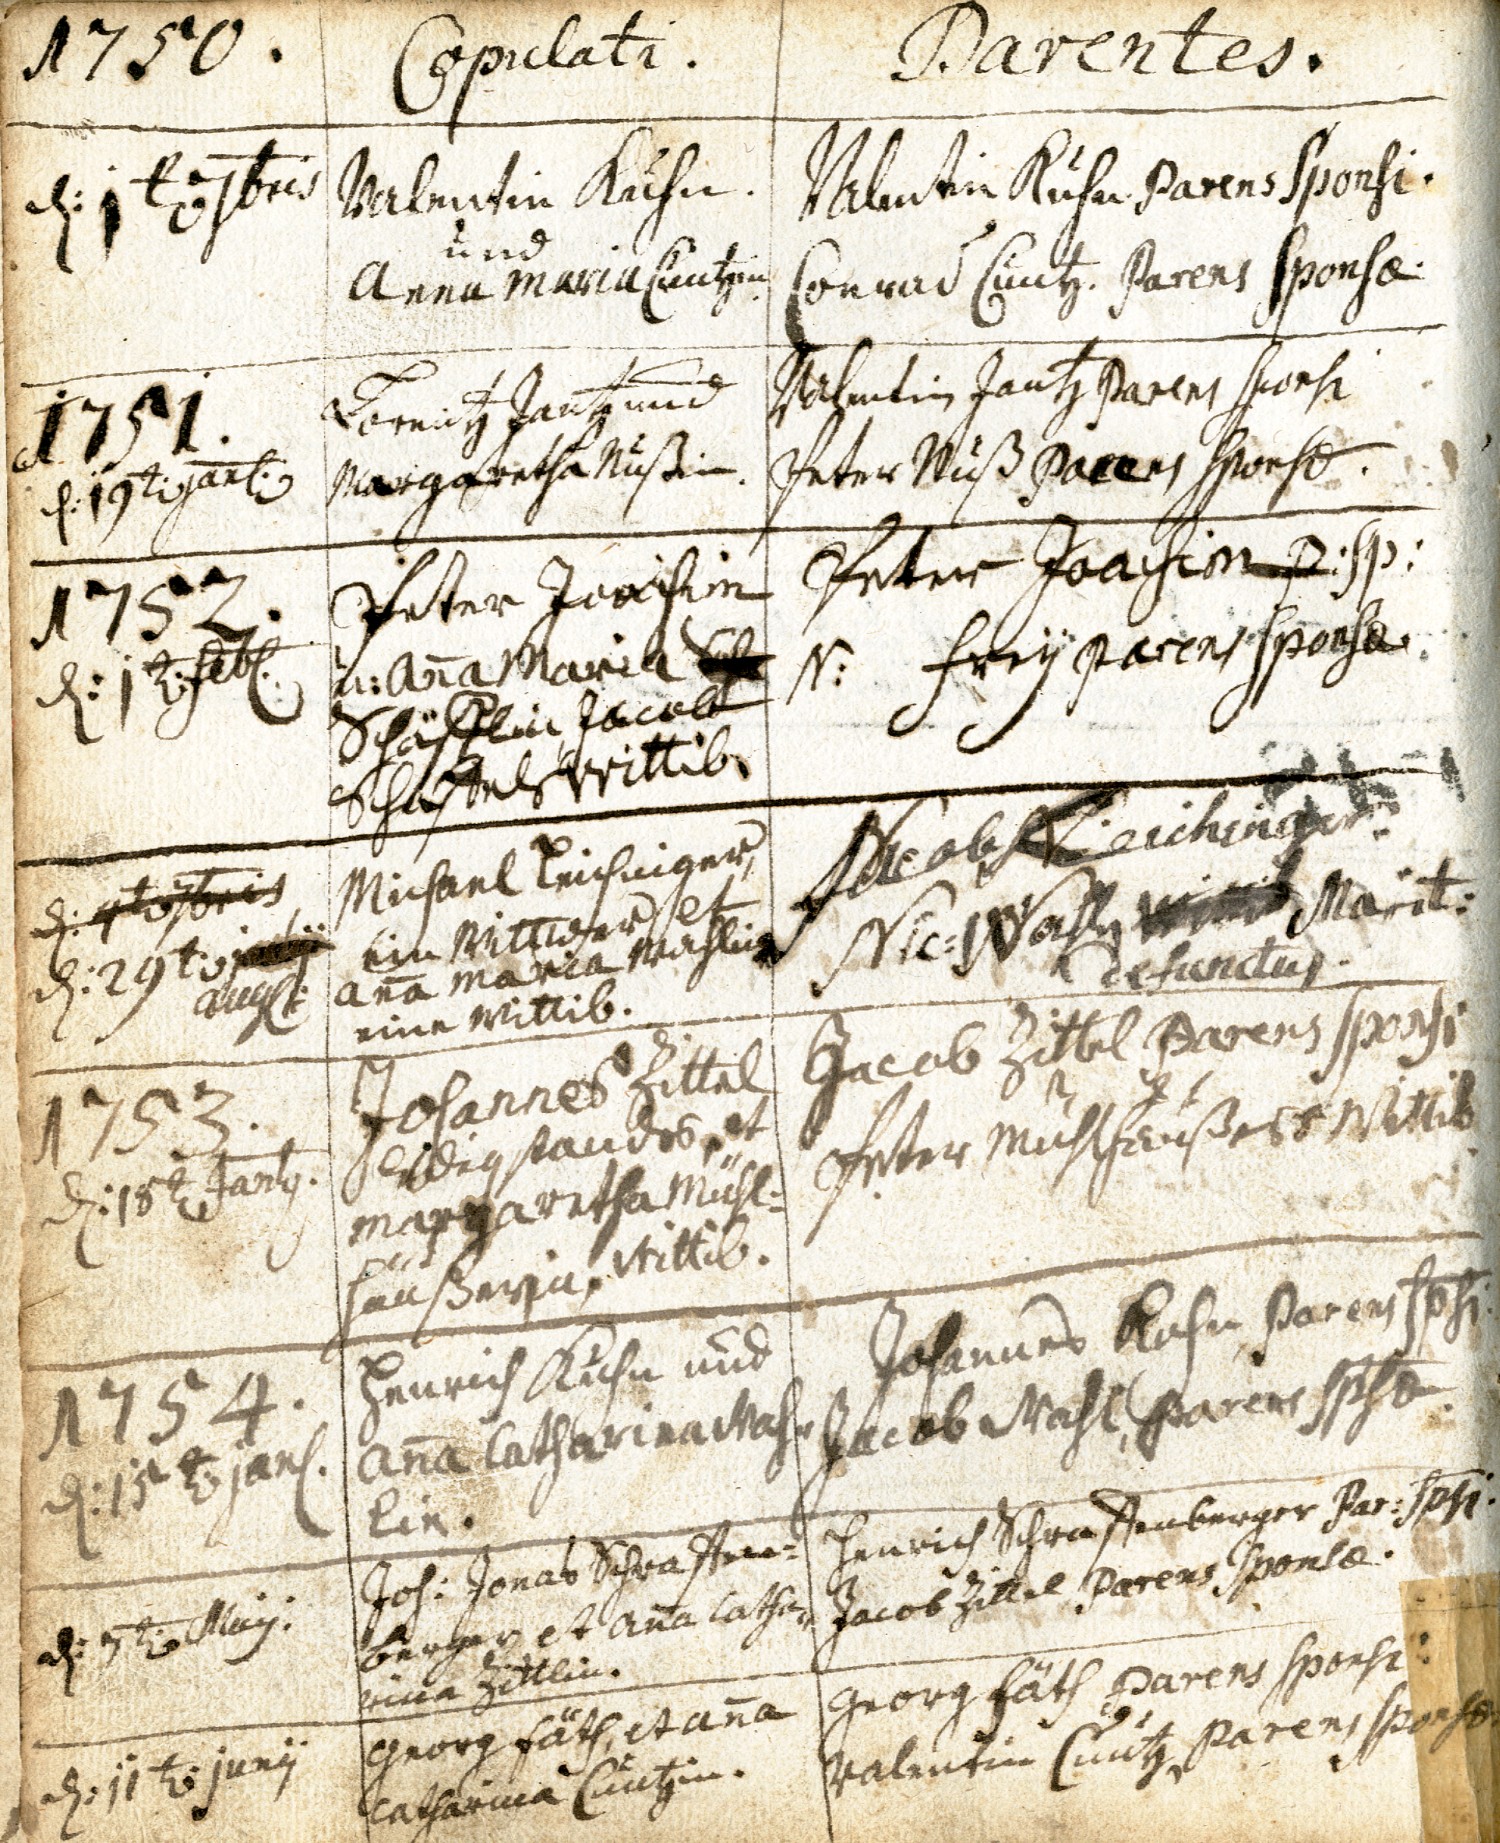 1750. Copulati. Parentes.
d: 1t 7bris
Valentin Kuhn.
und
Anna Maria Cuntzin.
Valentin Kuhn Parens Sponsi.
Conrad Cuntz. Parens Sponsæ.
1751.
d: 19t: janl:
Lorentz Jantz und
Margaretha Nußin.
Valentin Jantz Parens Sponsi
Peter Nuß Parens Sponsæ.
1752.
d: 1t: febl.
Peter Joachim
u: Aña Maria
Schäfflin, Jacob
Schaffels Wittib.
Peter Joachim P: Sp:
N: Freÿ Parens Sponsæ.
d: 4t 7bris
d: 29t:
augl:
Michael Leichinger,
ein Wittwer, et
Aña Maria Wahlin
eine Wittib.
Jacob Leichinger.
Nic: Wahl, Marit:
defunctus.
1753.
d: 18t Janl.
Johannes Zittel
ledig standes, et
Margaretha Mühl:
häußerin, Wittib.
Jacob Zittel Parens Sponsi
Peter Mühlhäußers Wittib
1754.
d: 15t janl.
Henrich Kuhn und
Aña Catharina Wah-
lin.
Johannes Kuhn Parens Spsi.
Jacob Wahl, Parens Spsæ.
d: 7t: Maij.
Joh: Jonas Schraffen:
berger et Aña Catha-
rina Zittlin.
Henrich Schraffenberger Par: Spsi.
Jacob Zittel Parens Sponsæ.
d: 11t: junij
Georg Fäth, et Aña
Catharina Cuntzin.
Georg Fäth Parens Sponsi.
Valentin Cuntz, Parens Sponsæ.